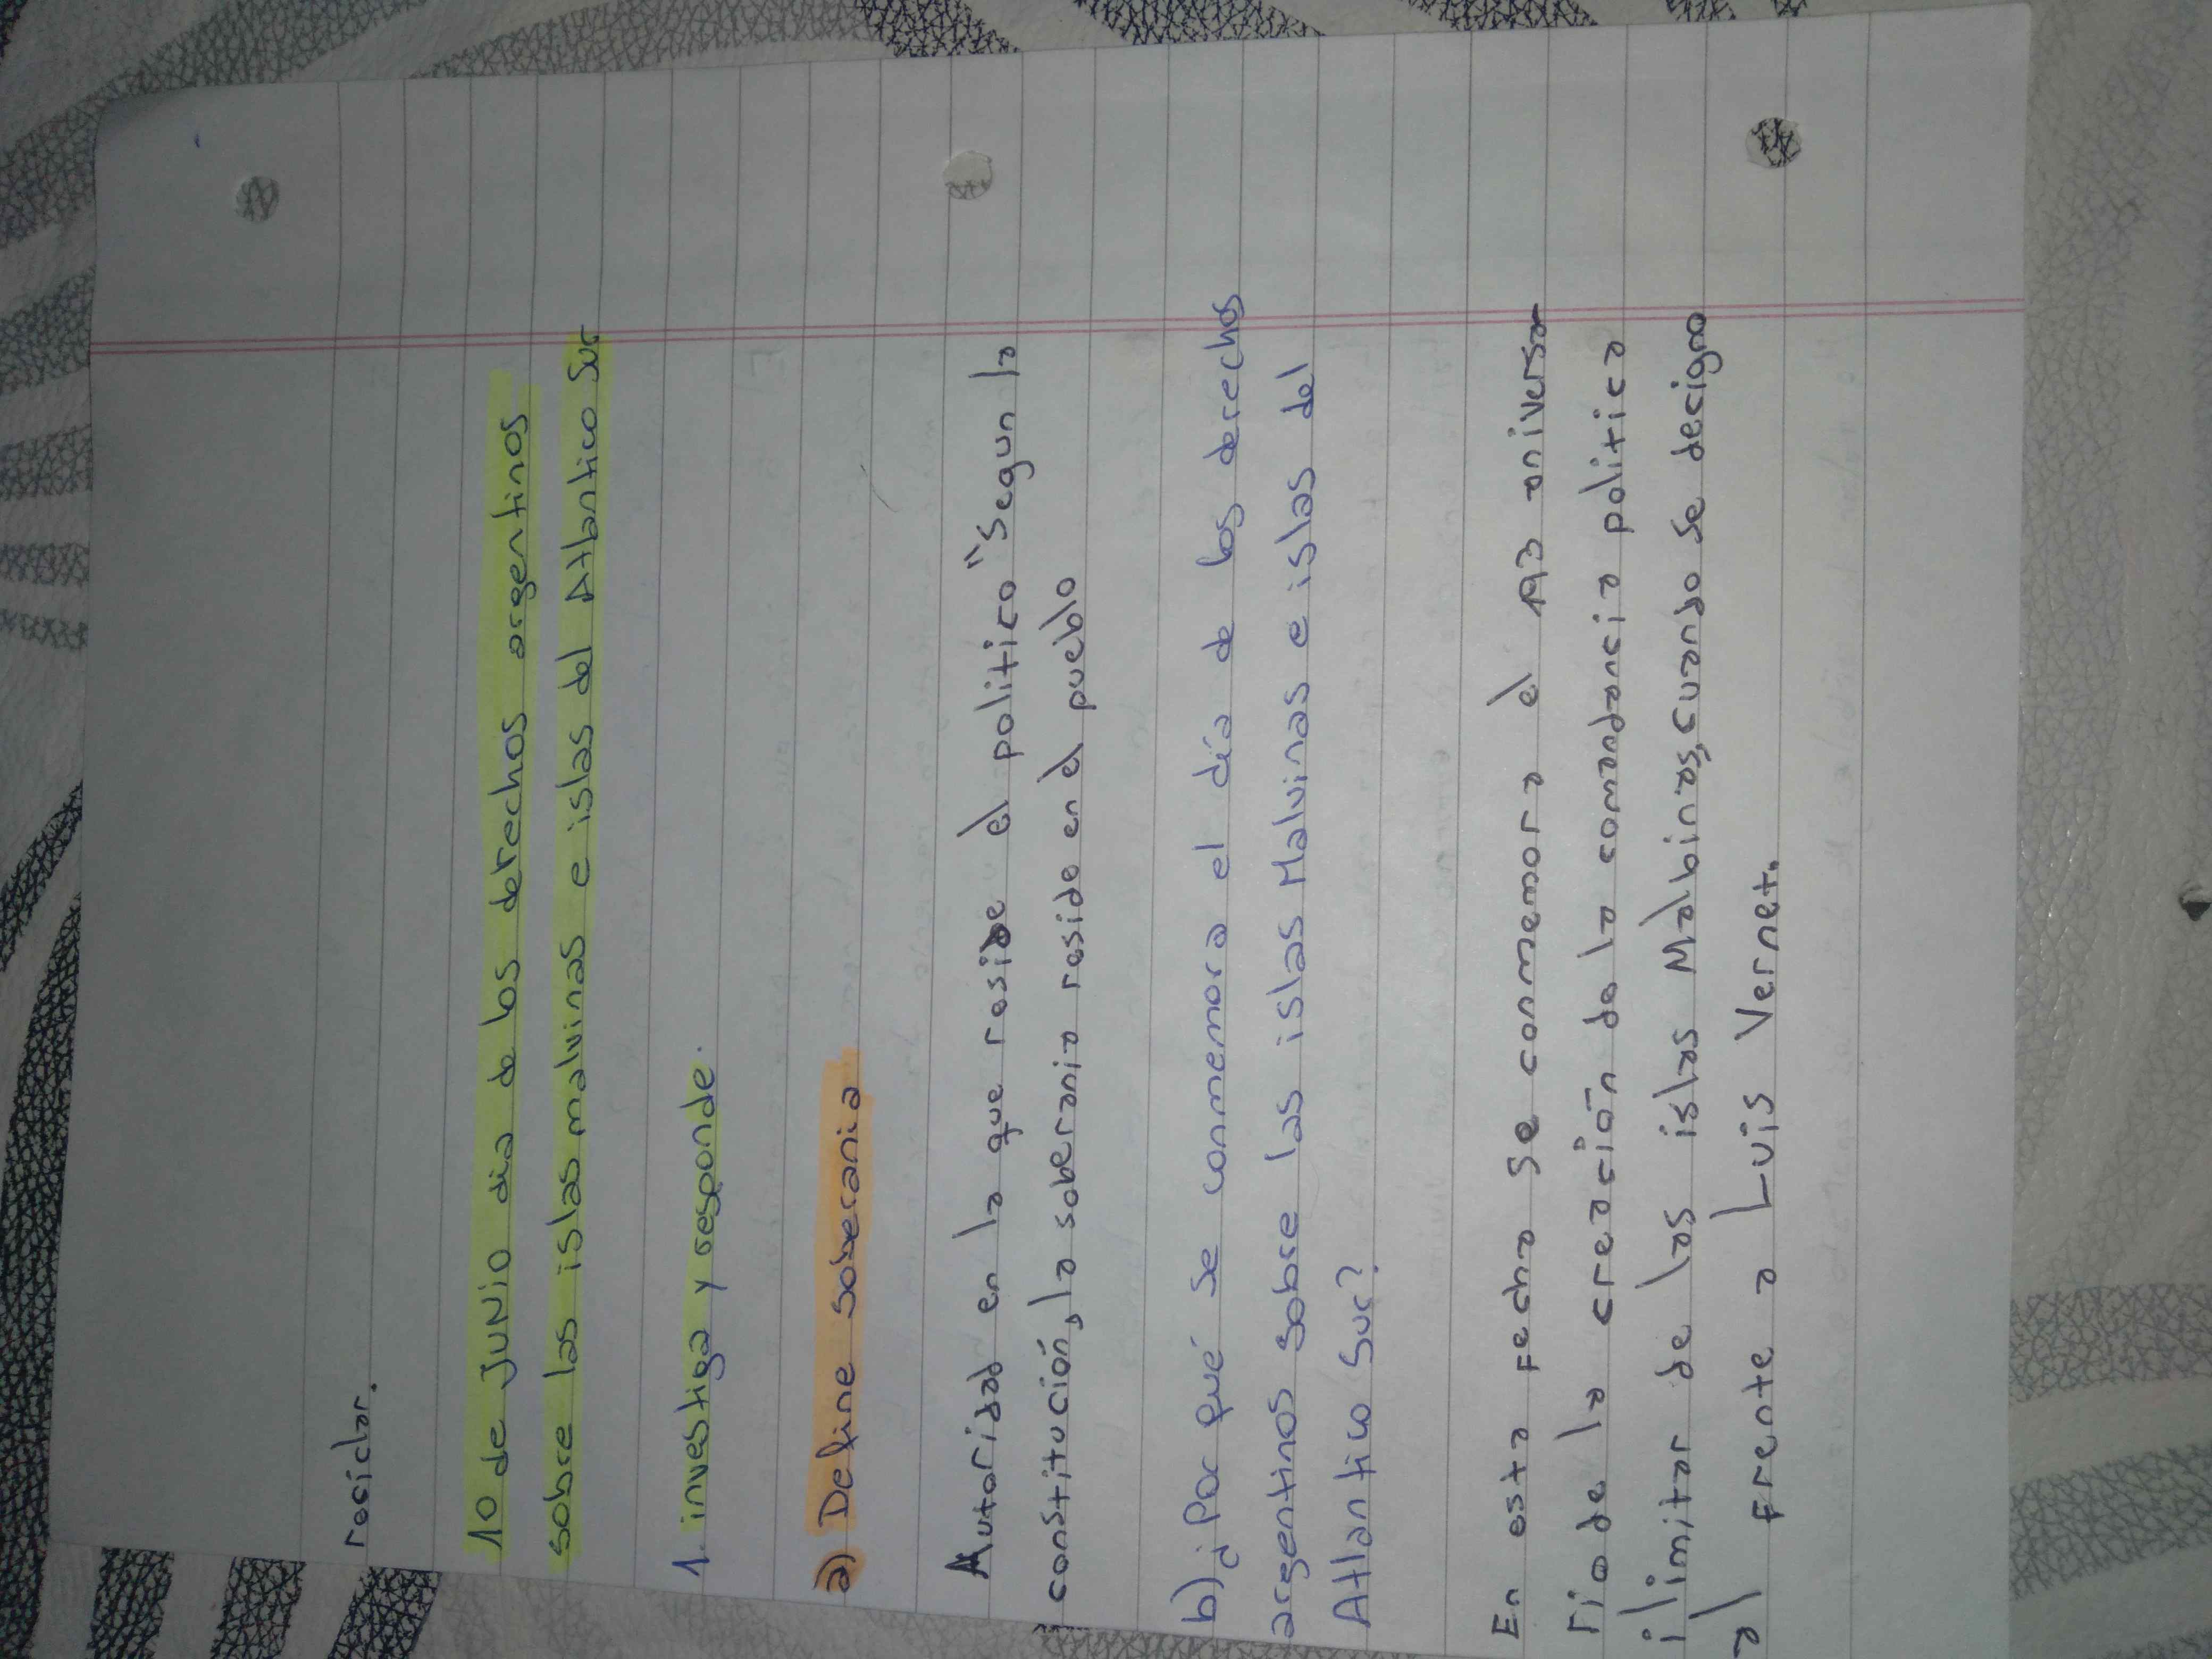 rosiclar.
10 de JUNIO dia de los derechos argentinos
sobre las islas malvinas e islas del Atlantico Sur
1. investiga y responde.
a) Define soberania
Autoridad en la que reside el politico "Segun la
constitución, la soberania reside en el pueblo
b) ¿Por qué se conmemora el día de los derechos
argentinos sobre las islas Malvinas e islas del
Atlantico Sur?
En esta fecha se conmemora el 193 aniversa
rio de la creación de la comandancia politica
ilimitar de las islas Malbinas, cuando se decigno
al frente a Luis Vernet.